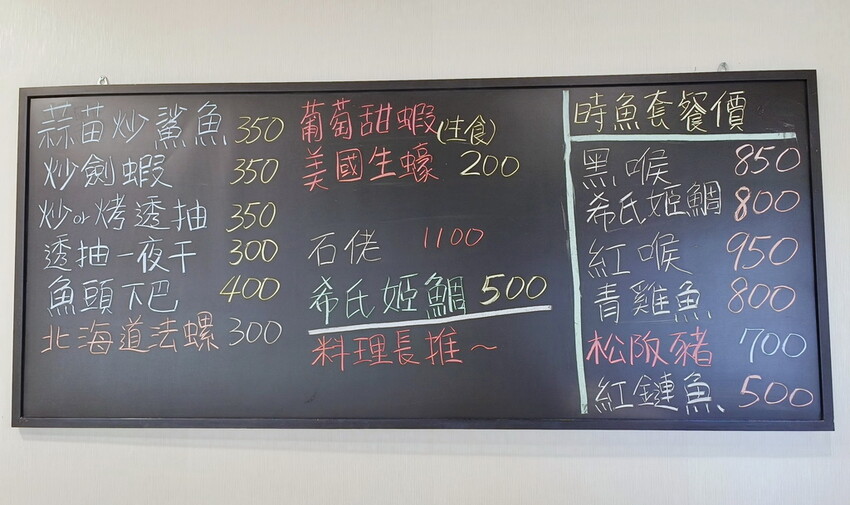 蒜苗炒鯊魚 350
炒劍蝦 350
炒or烤透抽 350
透抽一夜干 300
魚頭下巴 400
北海道法螺 300
葡萄甜蝦(生食)
美國生蠔 200
石佬 1100
希氏姬鯛 500
料理長推~
時魚套餐價
黑喉 850
希氏姬鯛 800
紅喉 950
青雞魚 800
松阪豬 700
紅鏈魚 500